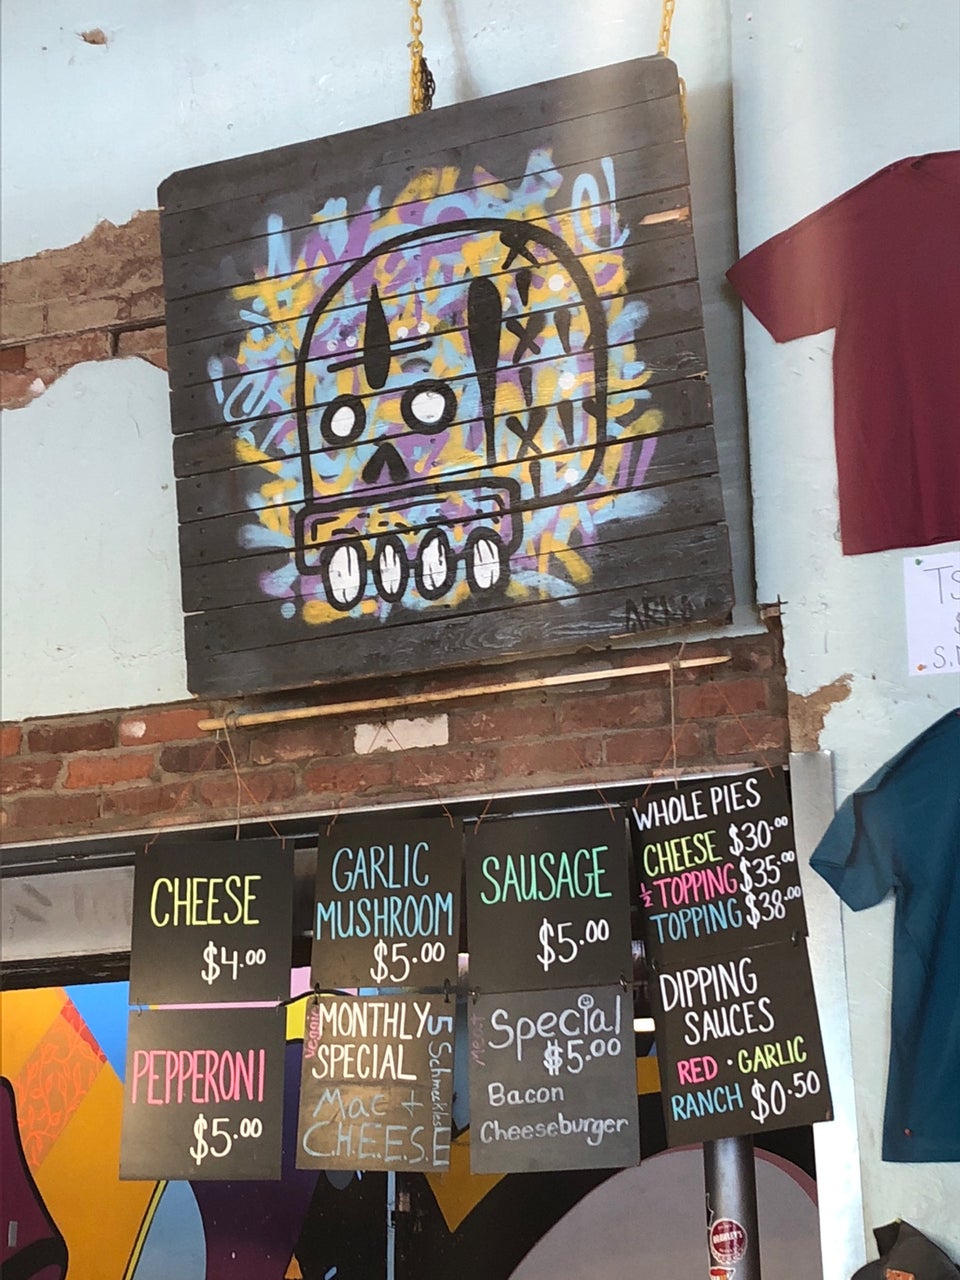 ARLO
CHEESE
$4.00
GARLIC
MUSHROOM
$5.00
SAUSAGE
$5.00
WHOLE PIES
CHEESE $30.00
½ TOPPING $35.00
TOPPING $38.00
PEPPERONI
$5.00
Veggie
MONTHLY
SPECIAL
Mac +
C.H.E.E.S.E
5 Schmeckles
Meat
Special
$5.00
Bacon
Cheeseburger
DIPPING
SAUCES
RED · GARLIC
RANCH $0.50